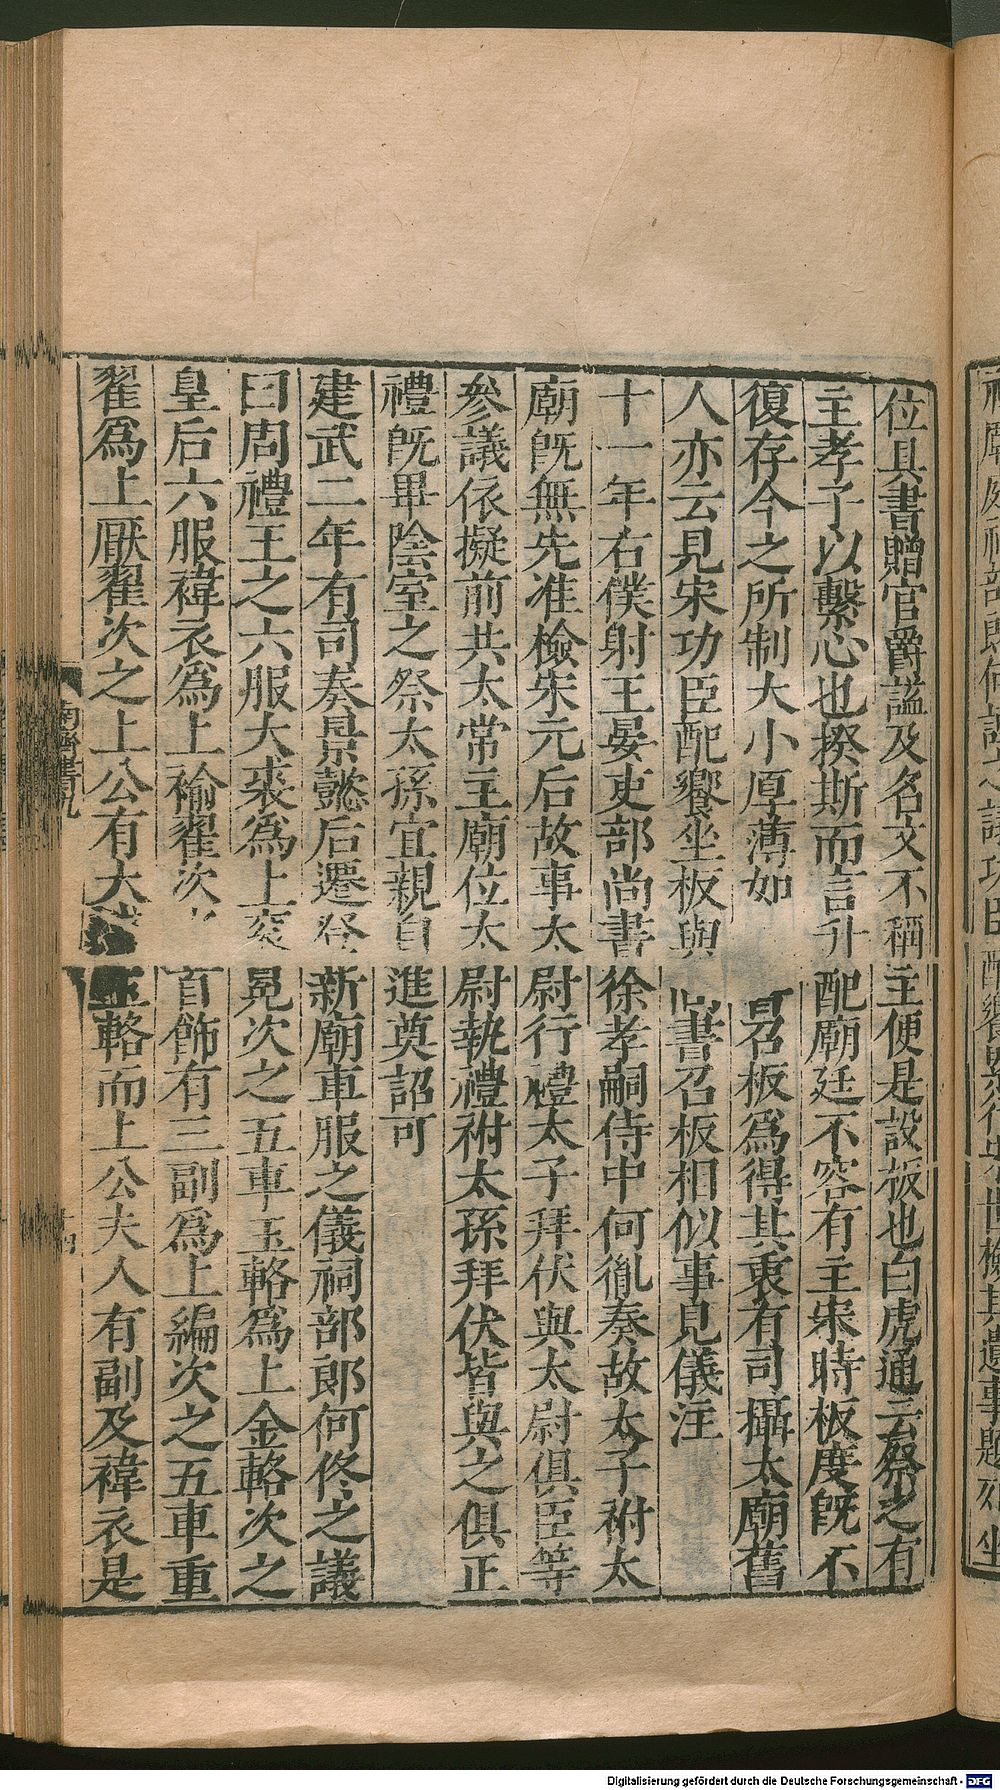 位具書贈官爵謚及名文不稱主便是設板也白虎通云祭之有
主孝子以繫心也揆斯而言升配廟廷不容有主宋時板度既不
復存今之所制大小厚薄如召板爲得其衷有司攝太廟舊
人亦云見宋功臣配饗坐板與尚書召板相似事見儀注
十一年右僕射王晏吏部尚書徐孝嗣侍中何胤奏故太子祔太
廟既無先准檢宋元后故事太尉行禮太子拜伏與太尉俱臣等
參議依擬前典太常主廟位太尉執禮祔太孫拜伏皆與之俱正
禮既畢陰室之祭太孫宜親自進奠詔可
建武二年有司奏景懿后遷登新廟車服之儀祠部郎何佟之議
曰周禮王之六服大裘爲上袞冕次之五車玉輅爲上金輅次之
皇后六服褘衣爲上褕翟次首飾有三副爲上編次之五車重
翟爲上厭翟次之上公有大玉輅而上公夫人有副及褘衣是
南齊書九
十四
Digitalisierung gefördert durch die Deutsche Forschungsgemeinschaft - DFG